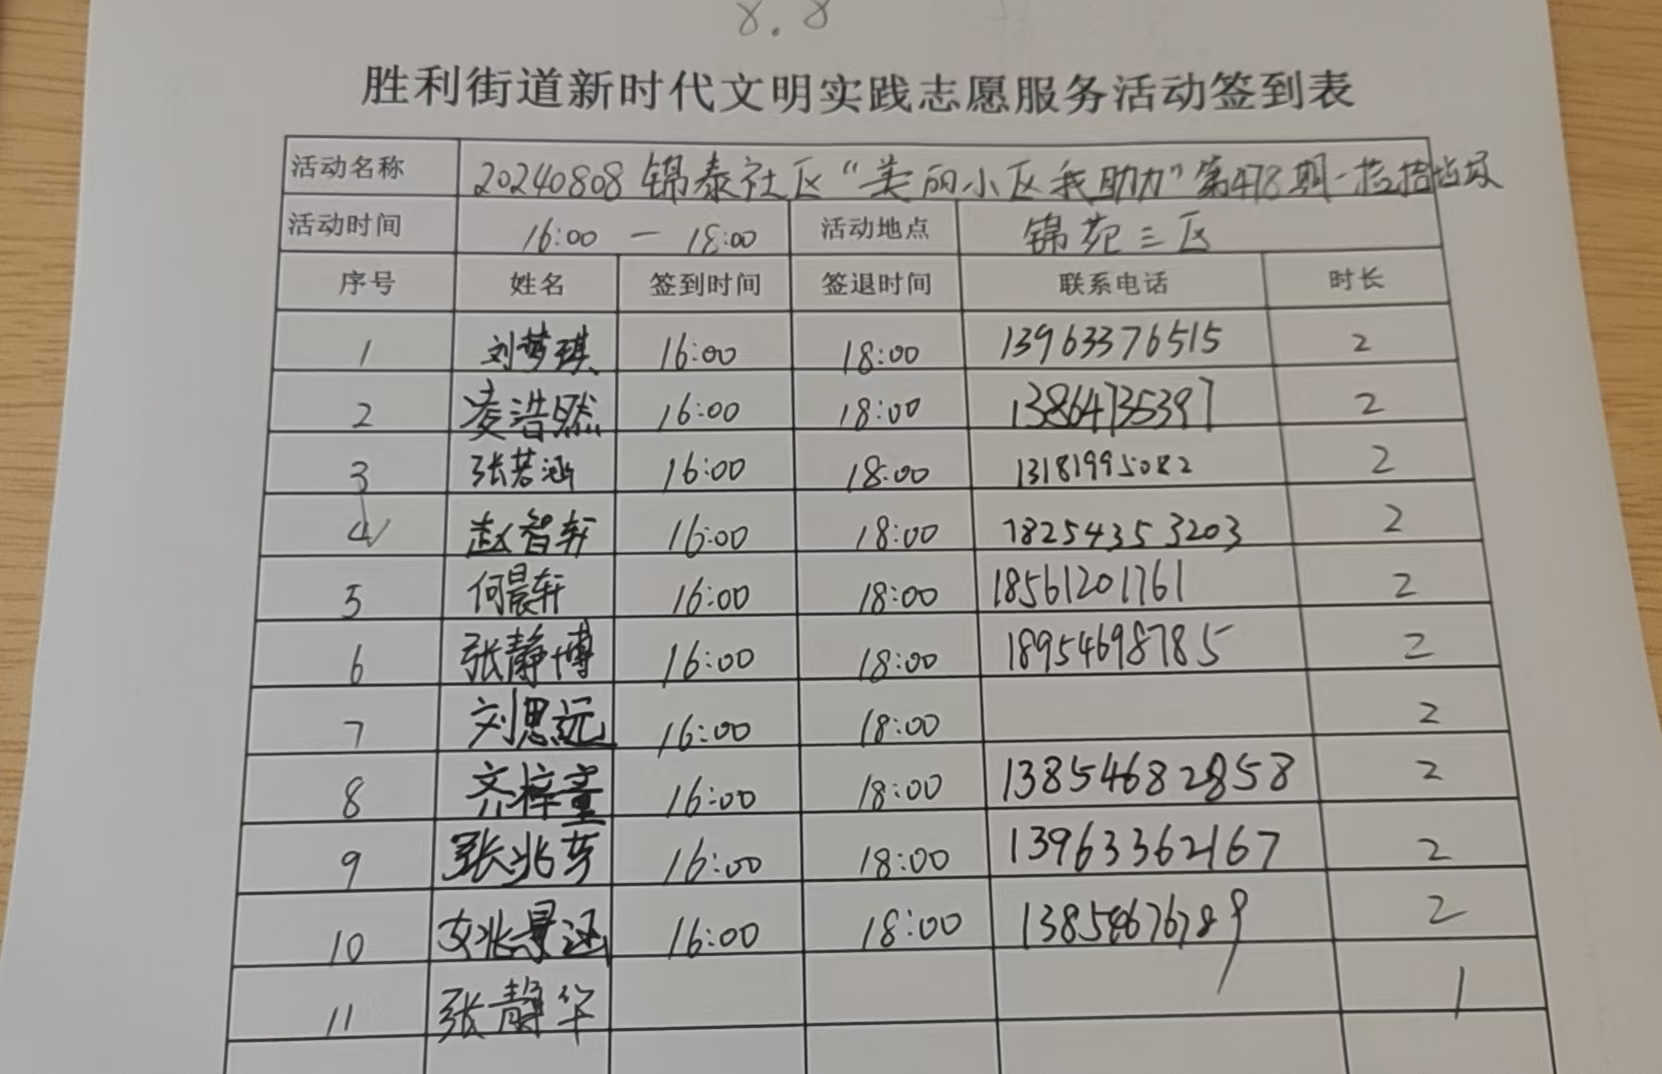 8.8
胜利街道新时代文明实践志愿服务活动签到表
活动名称 20240808锦泰社区“美丽小区我助力”第478期-捡拾垃圾
活动时间 16:00 — 18:00 活动地点 锦苑三区
序号 姓名 签到时间 签退时间 联系电话 时长
1 刘梦琪 16:00 18:00 13963376515 2
2 凌浩然 16:00 18:00 13864735397 2
3 张若涵 16:00 18:00 13181995082 2
4 赵智轩 16:00 18:00 18254353203 2
5 何晨轩 16:00 18:00 18561201761 2
6 张静博 16:00 18:00 18954698785 2
7 刘思远 16:00 18:00 2
8 齐梓童 16:00 18:00 13854682858 2
9 张兆芳 16:00 18:00 13963362167 2
10 姚景涵 16:00 18:00 2
11 张静华 1